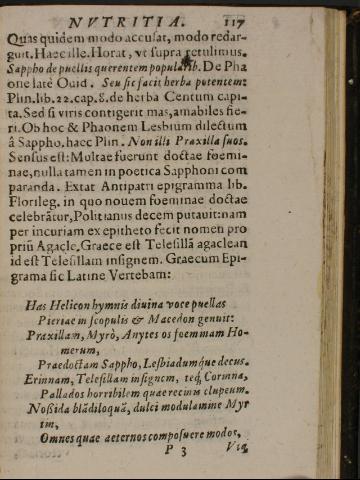 NVTRITIA. 117
Quas quidem modo accusat, modo redar-
guit. Hæc ille. Horat, vt supra retulimus.
Sappho de puellis querentem popularib. De Pha
one latè Ouid. Seu sic facit herba potentem:
Plin. lib. 22. cap. 8. de herba Centum capi-
ta. Sed si viris contigerit mas, amabiles fie-
ri. Ob hoc & Phaonem Lesbium dilectum
â Sappho. hæc Plin. Non illi Praxilla suos.
Sensus est: Multae fuerunt doctae foemi-
nae, nulla tamen in poetica Sapphoni com
paranda. Extat Antipatri epigramma lib.
Florileg. in quo nouem foeminae doctae
celebrãtur, Politianus decem putauit: nam
per incuriam ex epitheto fecit nomen pro
priũ Agacle. Graece est Telesillã agaclean
id est Telesillam insignem. Graecum Epi-
grama sic Latine Vertebam:
Has Helicon hymnis diuina voce puellas
Pieriae in scopulis & Macedon genuit:
Praxillam, Myrò, Anytes os foemmam Ho-
merum,
Praedoctam Sappho, Lesbiadumq́ue decus.
Erinnam, Telesillam insignem, teq́, Corinna,
Pallados horribilem quae recinis clupeum.
Noßida blãdiloquã, dulci modulamine Myr
tim,
Omnes quae aeternos composuere modos,
P 3